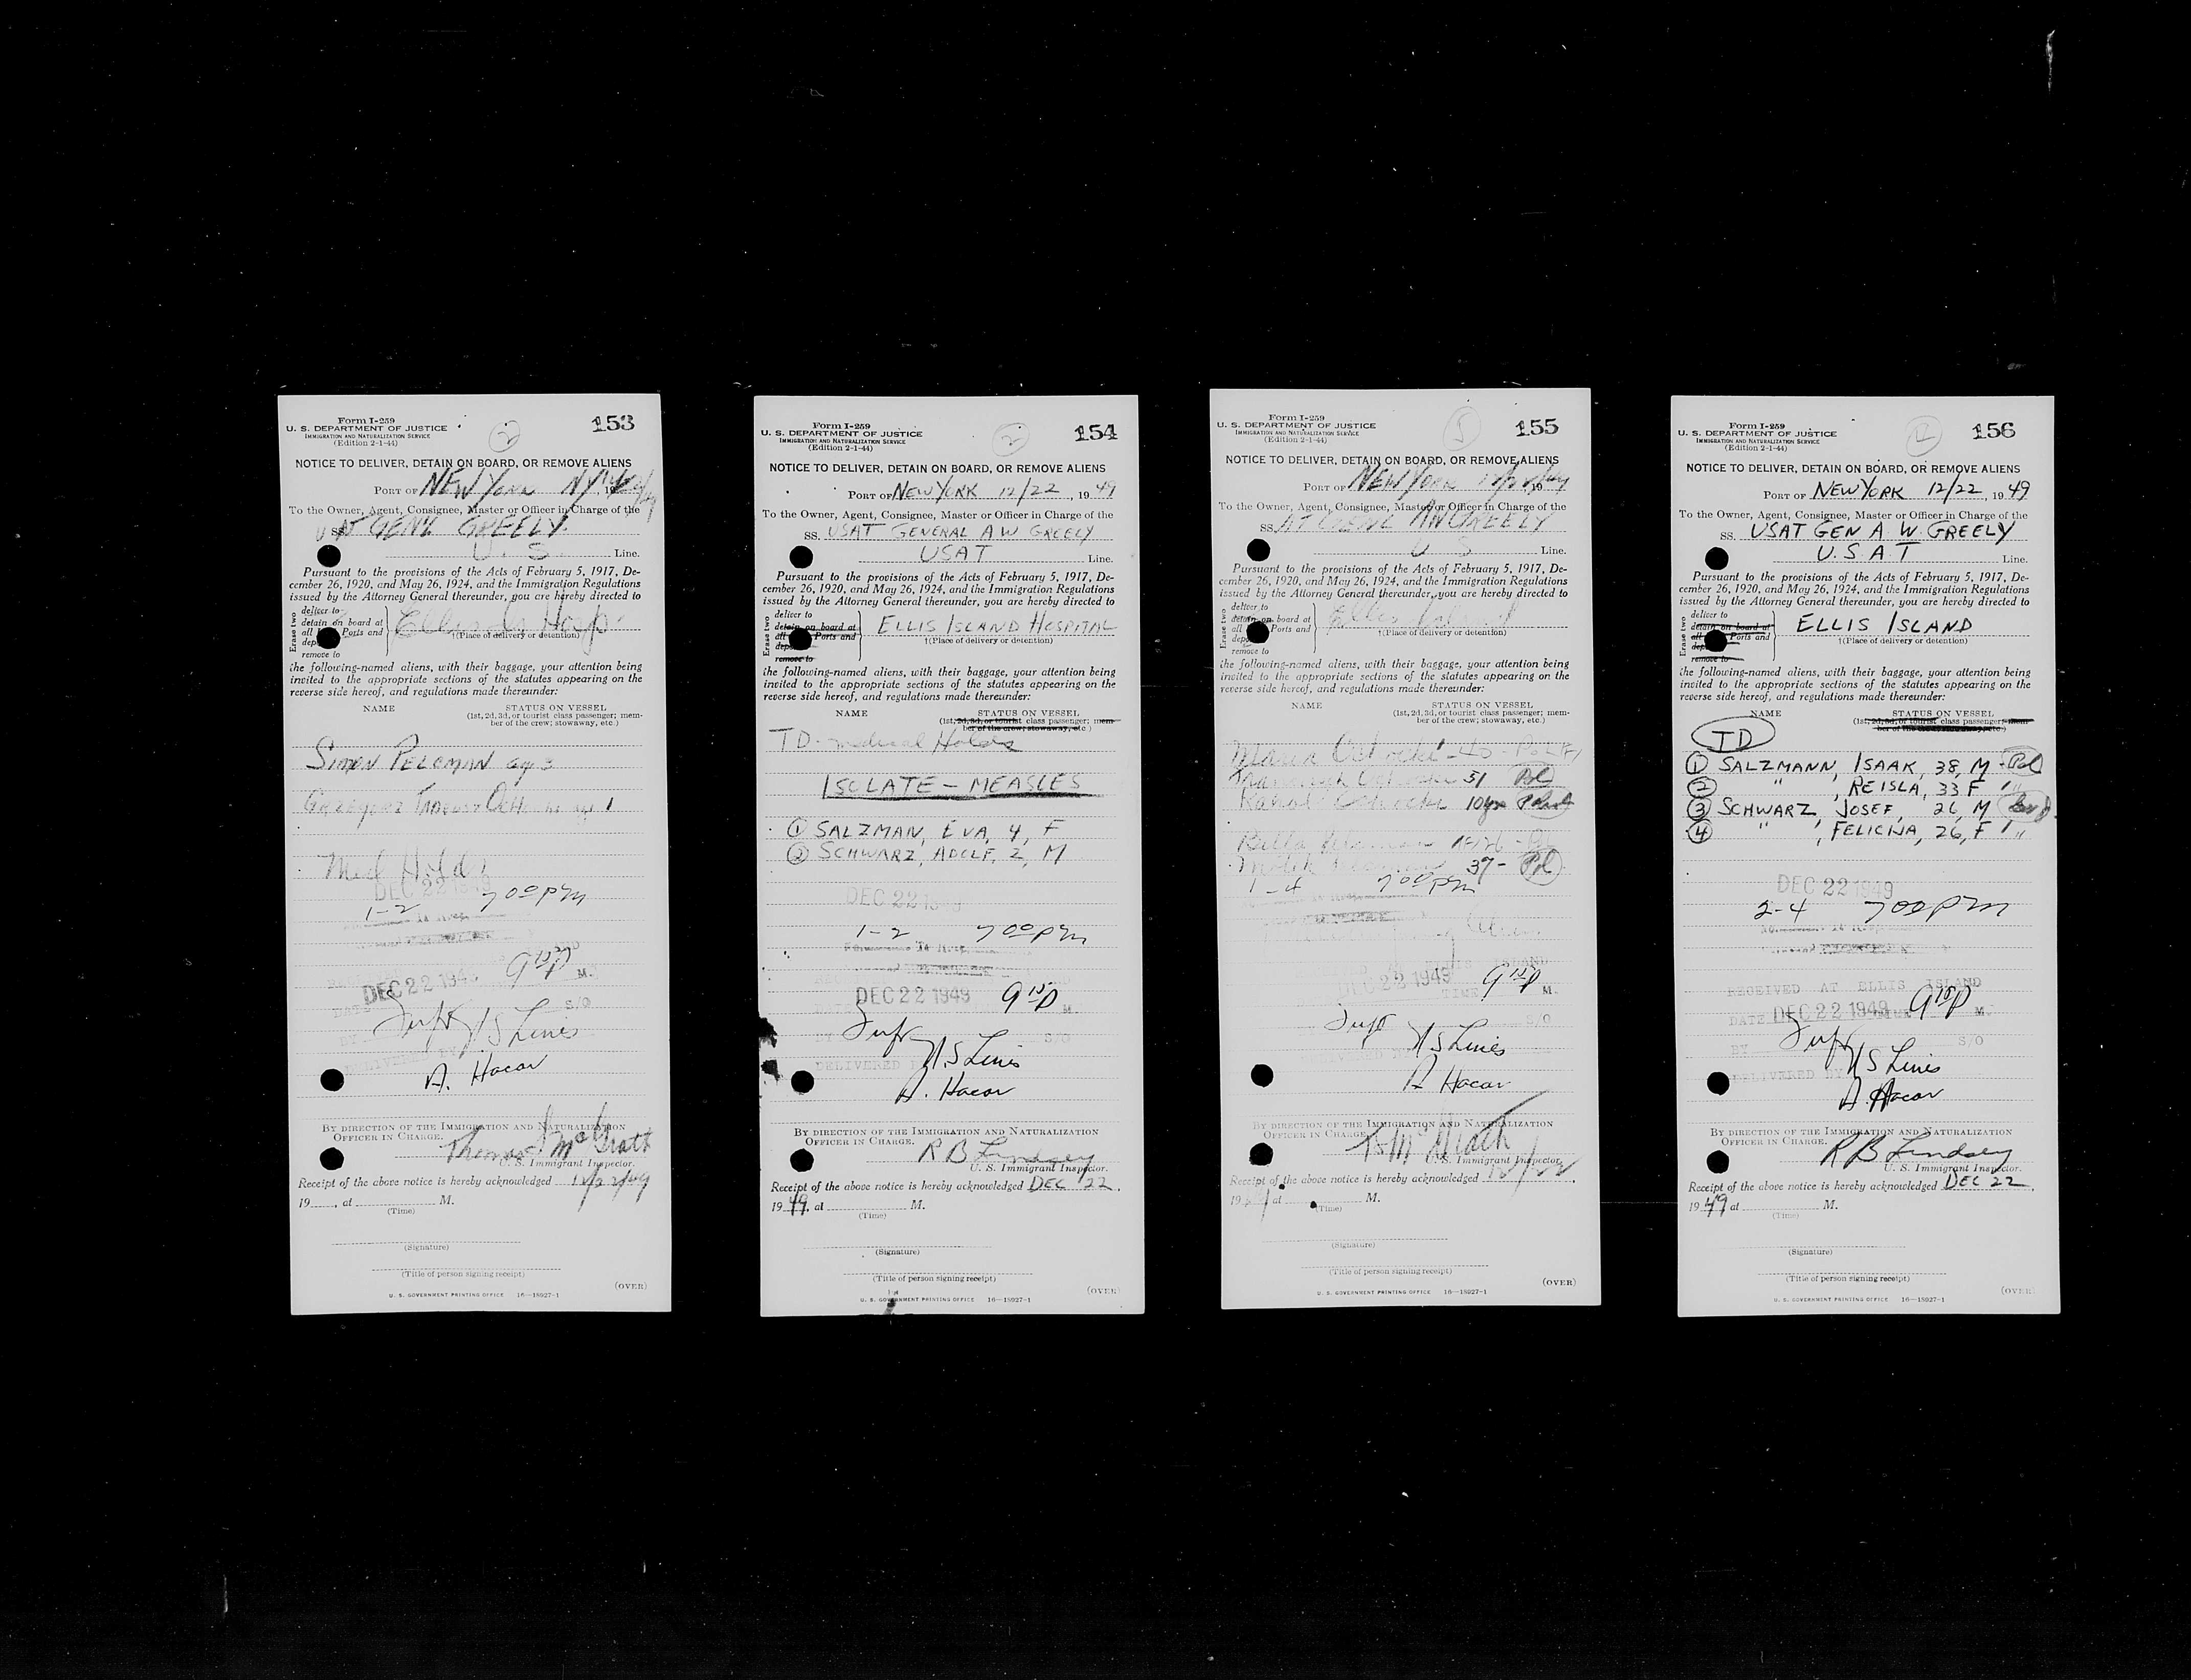 Form I-259
U. S. DEPARTMENT OF JUSTICE
IMMIGRATION AND NATURALIZATION SERVICE
(Edition 2-1-44)
153
NOTICE TO DELIVER, DETAIN ON BOARD, OR REMOVE ALIENS
PORT OF NEW YORK NY, 19
To the Owner, Agent, Consignee, Master or Officer in Charge of the
SS. GENL GREELY.
U. S. Line.
Pursuant to the provisions of the Acts of February 5, 1917, De-
cember 26, 1920, and May 26, 1924, and the Immigration Regulations
issued by the Attorney General thereunder, you are hereby directed to
Erase two
deliver to
detain on board at
all Ports and
remove to
Ellis Is Hosp.
†(Place of delivery or detention)
the following-named aliens, with their baggage, your attention being
invited to the appropriate sections of the statutes appearing on the
reverse side hereof, and regulations made thereunder:
NAME STATUS ON VESSEL
(1st, 2d, 3d, or tourist class passenger; mem-
ber of the crew; stowaway, etc.)
SIMON PELCMAN age 3
GRZEGORZ age 1
Med Holds
DEC 22 1949
1-2 7 00 PM
DEC 22 194 9 15 P M.
DATE
Supt N S Lines S/O
BY
DELIVERED BY
A. Hacar
BY DIRECTION OF THE IMMIGRATION AND NATURALIZATION
OFFICER IN CHARGE.
Thomas McGrath
U. S. Immigrant Inspector.
Receipt of the above notice is hereby acknowledged 12/22/49
19, at M.
(Time)
(Signature)
(Title of person signing receipt)
(OVER)
U. S. GOVERNMENT PRINTING OFFICE 16—18927-1
Form I-259
U. S. DEPARTMENT OF JUSTICE
IMMIGRATION AND NATURALIZATION SERVICE
(Edition 2-1-44)
2
154
NOTICE TO DELIVER, DETAIN ON BOARD, OR REMOVE ALIENS
PORT OF NEW YORK 12/22, 1949
To the Owner, Agent, Consignee, Master or Officer in Charge of the
SS. USAT GENERAL A W GREELY
USAT Line.
Pursuant to the provisions of the Acts of February 5, 1917, De-
cember 26, 1920, and May 26, 1924, and the Immigration Regulations
issued by the Attorney General thereunder, you are hereby directed to
Erase two
deliver to
detain on board at
all Ports and
remove to
ELLIS ISLAND HOSPITAL
†(Place of delivery or detention)
the following-named aliens, with their baggage, your attention being
invited to the appropriate sections of the statutes appearing on the
reverse side hereof, and regulations made thereunder:
NAME STATUS ON VESSEL
(1st, 2d, 3d, or tourist class passenger; mem-
ber of the crew; stowaway, etc.)
TD - medical Holds
ISOLATE - MEASLES
1 SALZMAN, EVA, 4, F
2 SCHWARZ, ADOLF, 2, M
DEC 22 1949
1-2 7 00 PM
DEC 22 1949 9 15 P M.
Supt N S Lines S/O
BY
DELIVERED
A. Hacar
BY DIRECTION OF THE IMMIGRATION AND NATURALIZATION
OFFICER IN CHARGE.
R B Lindsey
U. S. Immigrant Inspector.
Receipt of the above notice is hereby acknowledged DEC 22,
1949, at M.
(Time)
(Signature)
(Title of person signing receipt)
(OVER)
U. S. GOVERNMENT PRINTING OFFICE 16—18927-1
Form I-259
U. S. DEPARTMENT OF JUSTICE
IMMIGRATION AND NATURALIZATION SERVICE
(Edition 2-1-44)
5
155
NOTICE TO DELIVER, DETAIN ON BOARD, OR REMOVE ALIENS
PORT OF NEW YORK 19
To the Owner, Agent, Consignee, Master or Officer in Charge of the
SS. AT GENL AW GREELY
U S Line.
Pursuant to the provisions of the Acts of February 5, 1917, De-
cember 26, 1920, and May 26, 1924, and the Immigration Regulations
issued by the Attorney General thereunder, you are hereby directed to
Erase two
deliver to
detain on board at
all Ports and
remove to
Ellis Island
†(Place of delivery or detention)
the following-named aliens, with their baggage, your attention being
invited to the appropriate sections of the statutes appearing on the
reverse side hereof, and regulations made thereunder:
NAME STATUS ON VESSEL
(1st, 2d, 3d, or tourist class passenger; mem-
ber of the crew; stowaway, etc.)
Maria 40
51 Pol
Karol 10yrs
Bella
37- Pol
1-4 7 00 PM
ELLIS ISLAND
DEC 22 1949 TIME 9 15 P M.
Supt N S Lines S/O
DELIVERED
A Hacar
BY DIRECTION OF THE IMMIGRATION AND NATURALIZATION
OFFICER IN CHARGE.
T McGrath
U. S. Immigrant Inspector.
Receipt of the above notice is hereby acknowledged 12/22,
19 at M.
(Time)
(Signature)
(Title of person signing receipt)
(OVER)
U. S. GOVERNMENT PRINTING OFFICE 16—18927-1
Form I-259
U. S. DEPARTMENT OF JUSTICE
IMMIGRATION AND NATURALIZATION SERVICE
(Edition 2-1-44)
156
NOTICE TO DELIVER, DETAIN ON BOARD, OR REMOVE ALIENS
PORT OF NEW YORK 12/22, 1949
To the Owner, Agent, Consignee, Master or Officer in Charge of the
SS. USAT GEN A W. GREELY
U.S.A.T Line.
Pursuant to the provisions of the Acts of February 5, 1917, De-
cember 26, 1920, and May 26, 1924, and the Immigration Regulations
issued by the Attorney General thereunder, you are hereby directed to
Erase two
deliver to
detain on board at
all Ports and
remove to
ELLIS ISLAND
†(Place of delivery or detention)
the following-named aliens, with their baggage, your attention being
invited to the appropriate sections of the statutes appearing on the
reverse side hereof, and regulations made thereunder:
NAME STATUS ON VESSEL
(1st, 2d, 3d, or tourist class passenger; mem-
ber of the crew; stowaway, etc.)
TD
1 SALZMANN, ISAAK, 38, M - Pol
2 " , REISLA, 33 F "
3 SCHWARZ, JOSEF, 26, M
4 " , FELICIJA, 26, F "
DEC 22 1949
2-4 7 00 PM
RECEIVED AT ELLIS ISLAND
DATE DEC 22 1949 TIME 9 15 P M.
Supt N S Lines S/O
BY
DELIVERED BY
A. Hacar
BY DIRECTION OF THE IMMIGRATION AND NATURALIZATION
OFFICER IN CHARGE.
R B Lindsey
U. S. Immigrant Inspector.
Receipt of the above notice is hereby acknowledged DEC 22,
1949 at M.
(Time)
(Signature)
(Title of person signing receipt)
(OVER)
U. S. GOVERNMENT PRINTING OFFICE 16—18927-1